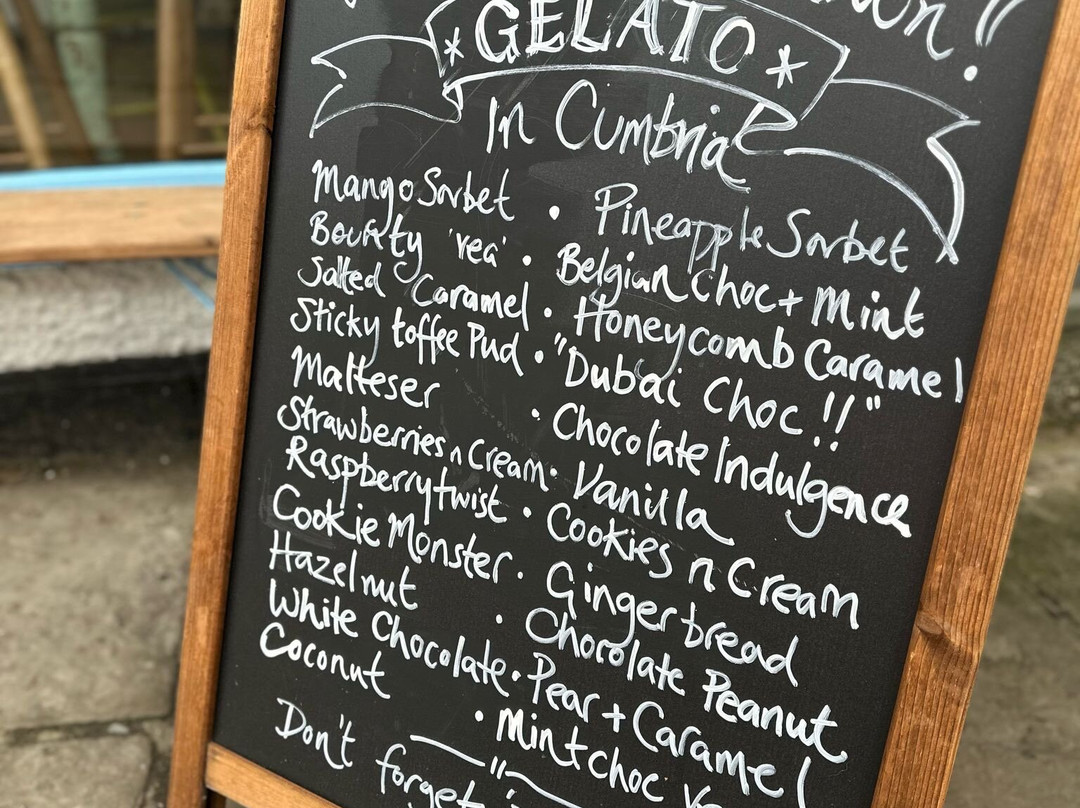 GELATO
In Cumbria
Mango Sorbet • Pineapple Sorbet
Bounty 'vea' • Belgian Choc + Mint
Salted Caramel • Honeycomb Caramel
Sticky toffee Pud • "Dubai Choc!!"
Malteser • Chocolate Indulgence
Strawberries n Cream • Vanilla
Raspberry twist • Cookies n Cream
Cookie Monster • Gingerbread
Hazelnut • Chocolate Peanut
White Chocolate • Pear + Caramel
Coconut • Mint choc
Don't forget